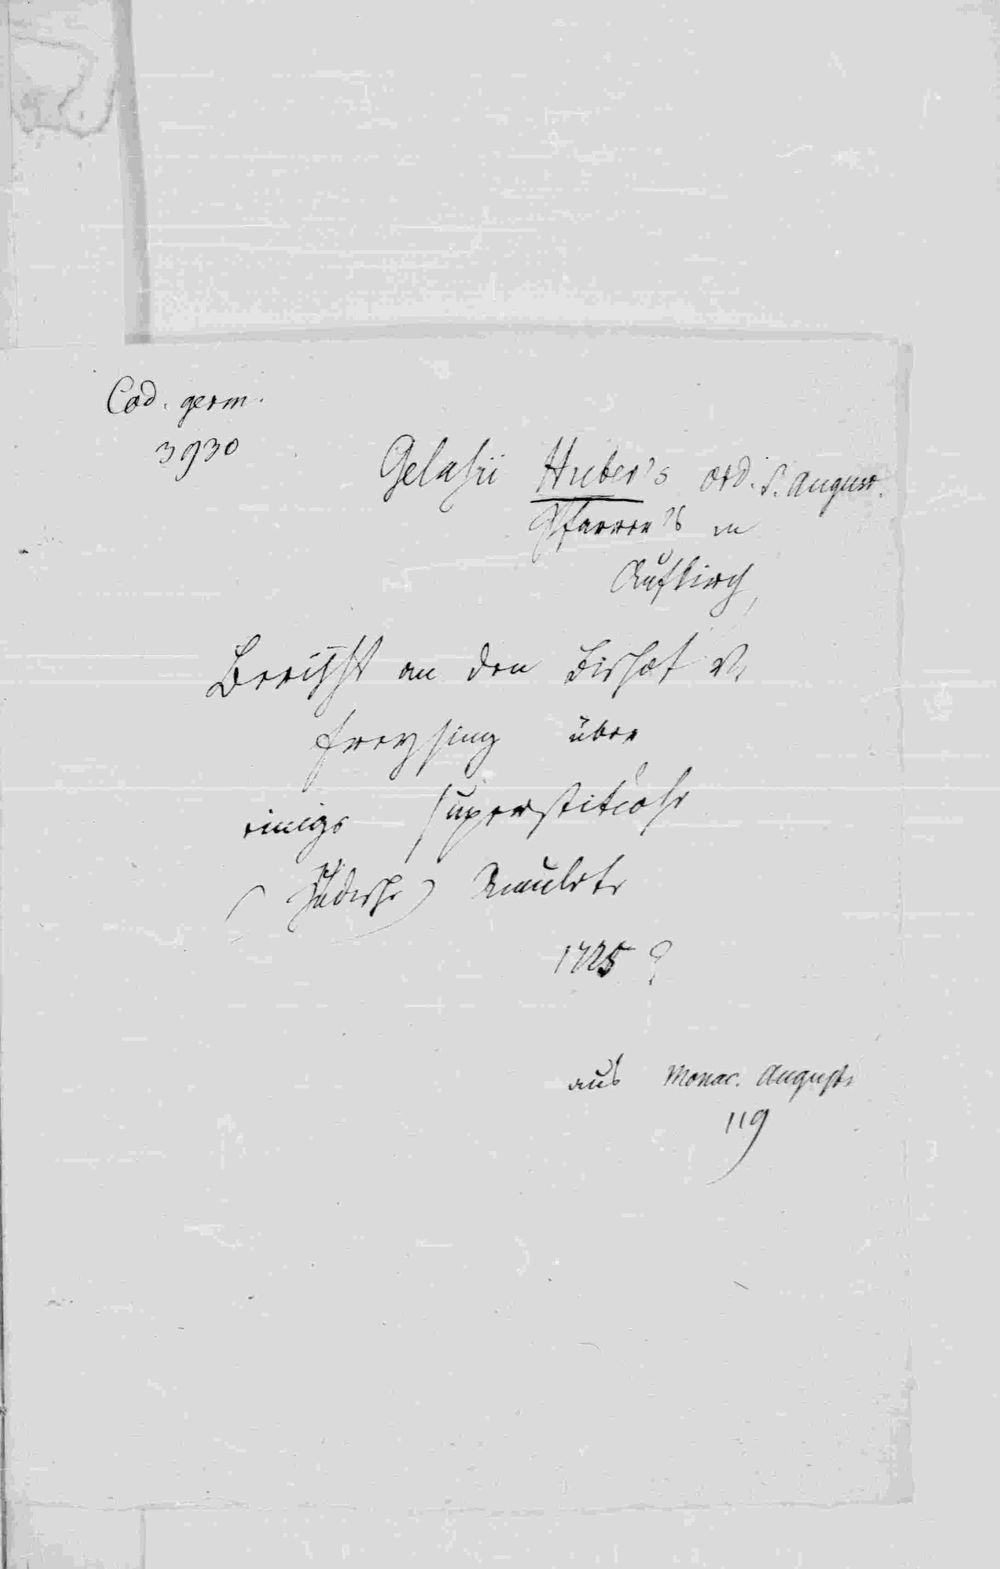 Cod. germ.
3930
Gelasii Huber's ord. S. August.
Pfarrer's in
Aufkirch,
Bericht an den Bischof v.
Freysing über
einige superstitiose
(Jüdische) Amulete
1725
aus Monac. August.
119